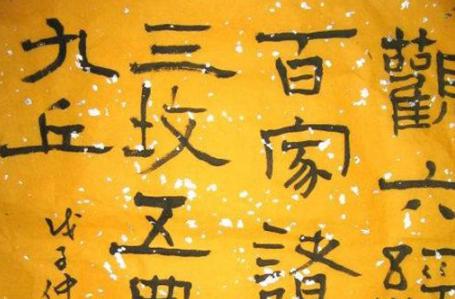 觀六經
百家諸
三坟五典
九丘
戊子仲